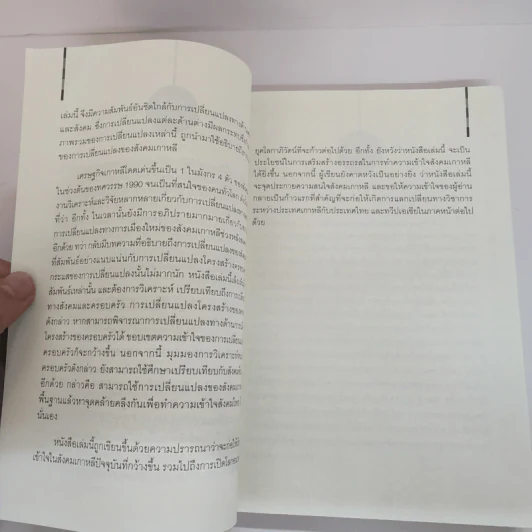 เล่มนี้ จึงมีความสัมพันธ์อันชิดใกล้กับการเปลี่ยนแปลงทางด้าน
และสังคม ซึ่งการเปลี่ยนแปลงแต่ละด้านต่างมีผลกระทบ
ภาพรวมของการเปลี่ยนแปลงเหล่านี้ ถูกนำมาใช้อธิบาย
ของการเปลี่ยนแปลงของสังคมเกาหลี
เศรษฐกิจเกาหลีโดดเด่นขึ้นเป็น 1 ในมังกร 4 ตัว
ในช่วงต้นของทศวรรษ 1990 จนเป็นที่สนใจของคนทั่วโลก
งานวิเคราะห์และวิจัยหลากหลายเกี่ยวกับการเปลี่ยนแปลง
ที่ว่า อีกทั้ง ในเวลานั้นยังมีการอภิปรายมากมายเกี่ยวกับ
การเปลี่ยนแปลงทางการเมืองใหม่ของสังคมเกาหลีช่วงหลัง
อีกด้วย ทว่า กลับมีบทความที่อธิบายถึงการเปลี่ยนแปลงของ
ที่สัมพันธ์อย่างแนบแน่นกับการเปลี่ยนแปลงโครงสร้าง
กระแสของการเปลี่ยนแปลงนั้นไม่มากนัก หนังสือเล่มนี้
สัมพันธ์เหล่านั้น และต้องการวิเคราะห์ เปรียบเทียบถึงการ
ทางสังคมและครอบครัว การเปลี่ยนแปลงโครงสร้าง
ดังกล่าว หากสามารถพิจารณาการเปลี่ยนแปลงทางด้าน
โครงสร้างของครอบครัวได้ ขอบเขตความเข้าใจของการเปลี่ยน
ครอบครัวก็จะกว้างขึ้น นอกจากนี้ มุมมองการวิเคราะห์
ครอบครัวดังกล่าว ยังสามารถใช้ศึกษาเปรียบเทียบกับสังคม
อีกด้วย กล่าวคือ สามารถใช้การเปลี่ยนแปลงของสังคม
พื้นฐานแล้วหาจุดคล้ายคลึงกันเพื่อทำความเข้าใจสังคม
นั่นเอง
หนังสือเล่มนี้ถูกเขียนขึ้นด้วยความปรารถนาว่าจะ
เข้าใจในสังคมเกาหลีปัจจุบันที่กว้างขึ้น รวมไปถึงการเปิด
ยุคโลกาภิวัตน์ที่จะก้าวต่อไปด้วย อีกทั้ง ยังหวังว่าหนังสือเล่มนี้ จะเป็น
ประโยชน์ในการเสริมสร้างอรรถรสในการทำความเข้าใจสังคมเกาหลี
ได้ยิ่งขึ้น นอกจากนี้ ผู้เขียนยังคาดหวังเป็นอย่างยิ่ง ว่าหนังสือเล่มนี้
จะจุดประกายความสนใจเกาหลี และขอให้ความเข้าใจของผู้อ่าน
กลายเป็นก้าวแรกที่สำคัญที่จะก่อให้เกิดการแลกเปลี่ยนทางวิชาการ
ระหว่างประเทศเกาหลีกับประเทศไทย และทวีปเอเชียในภาคหน้าต่อไป
ด้วย